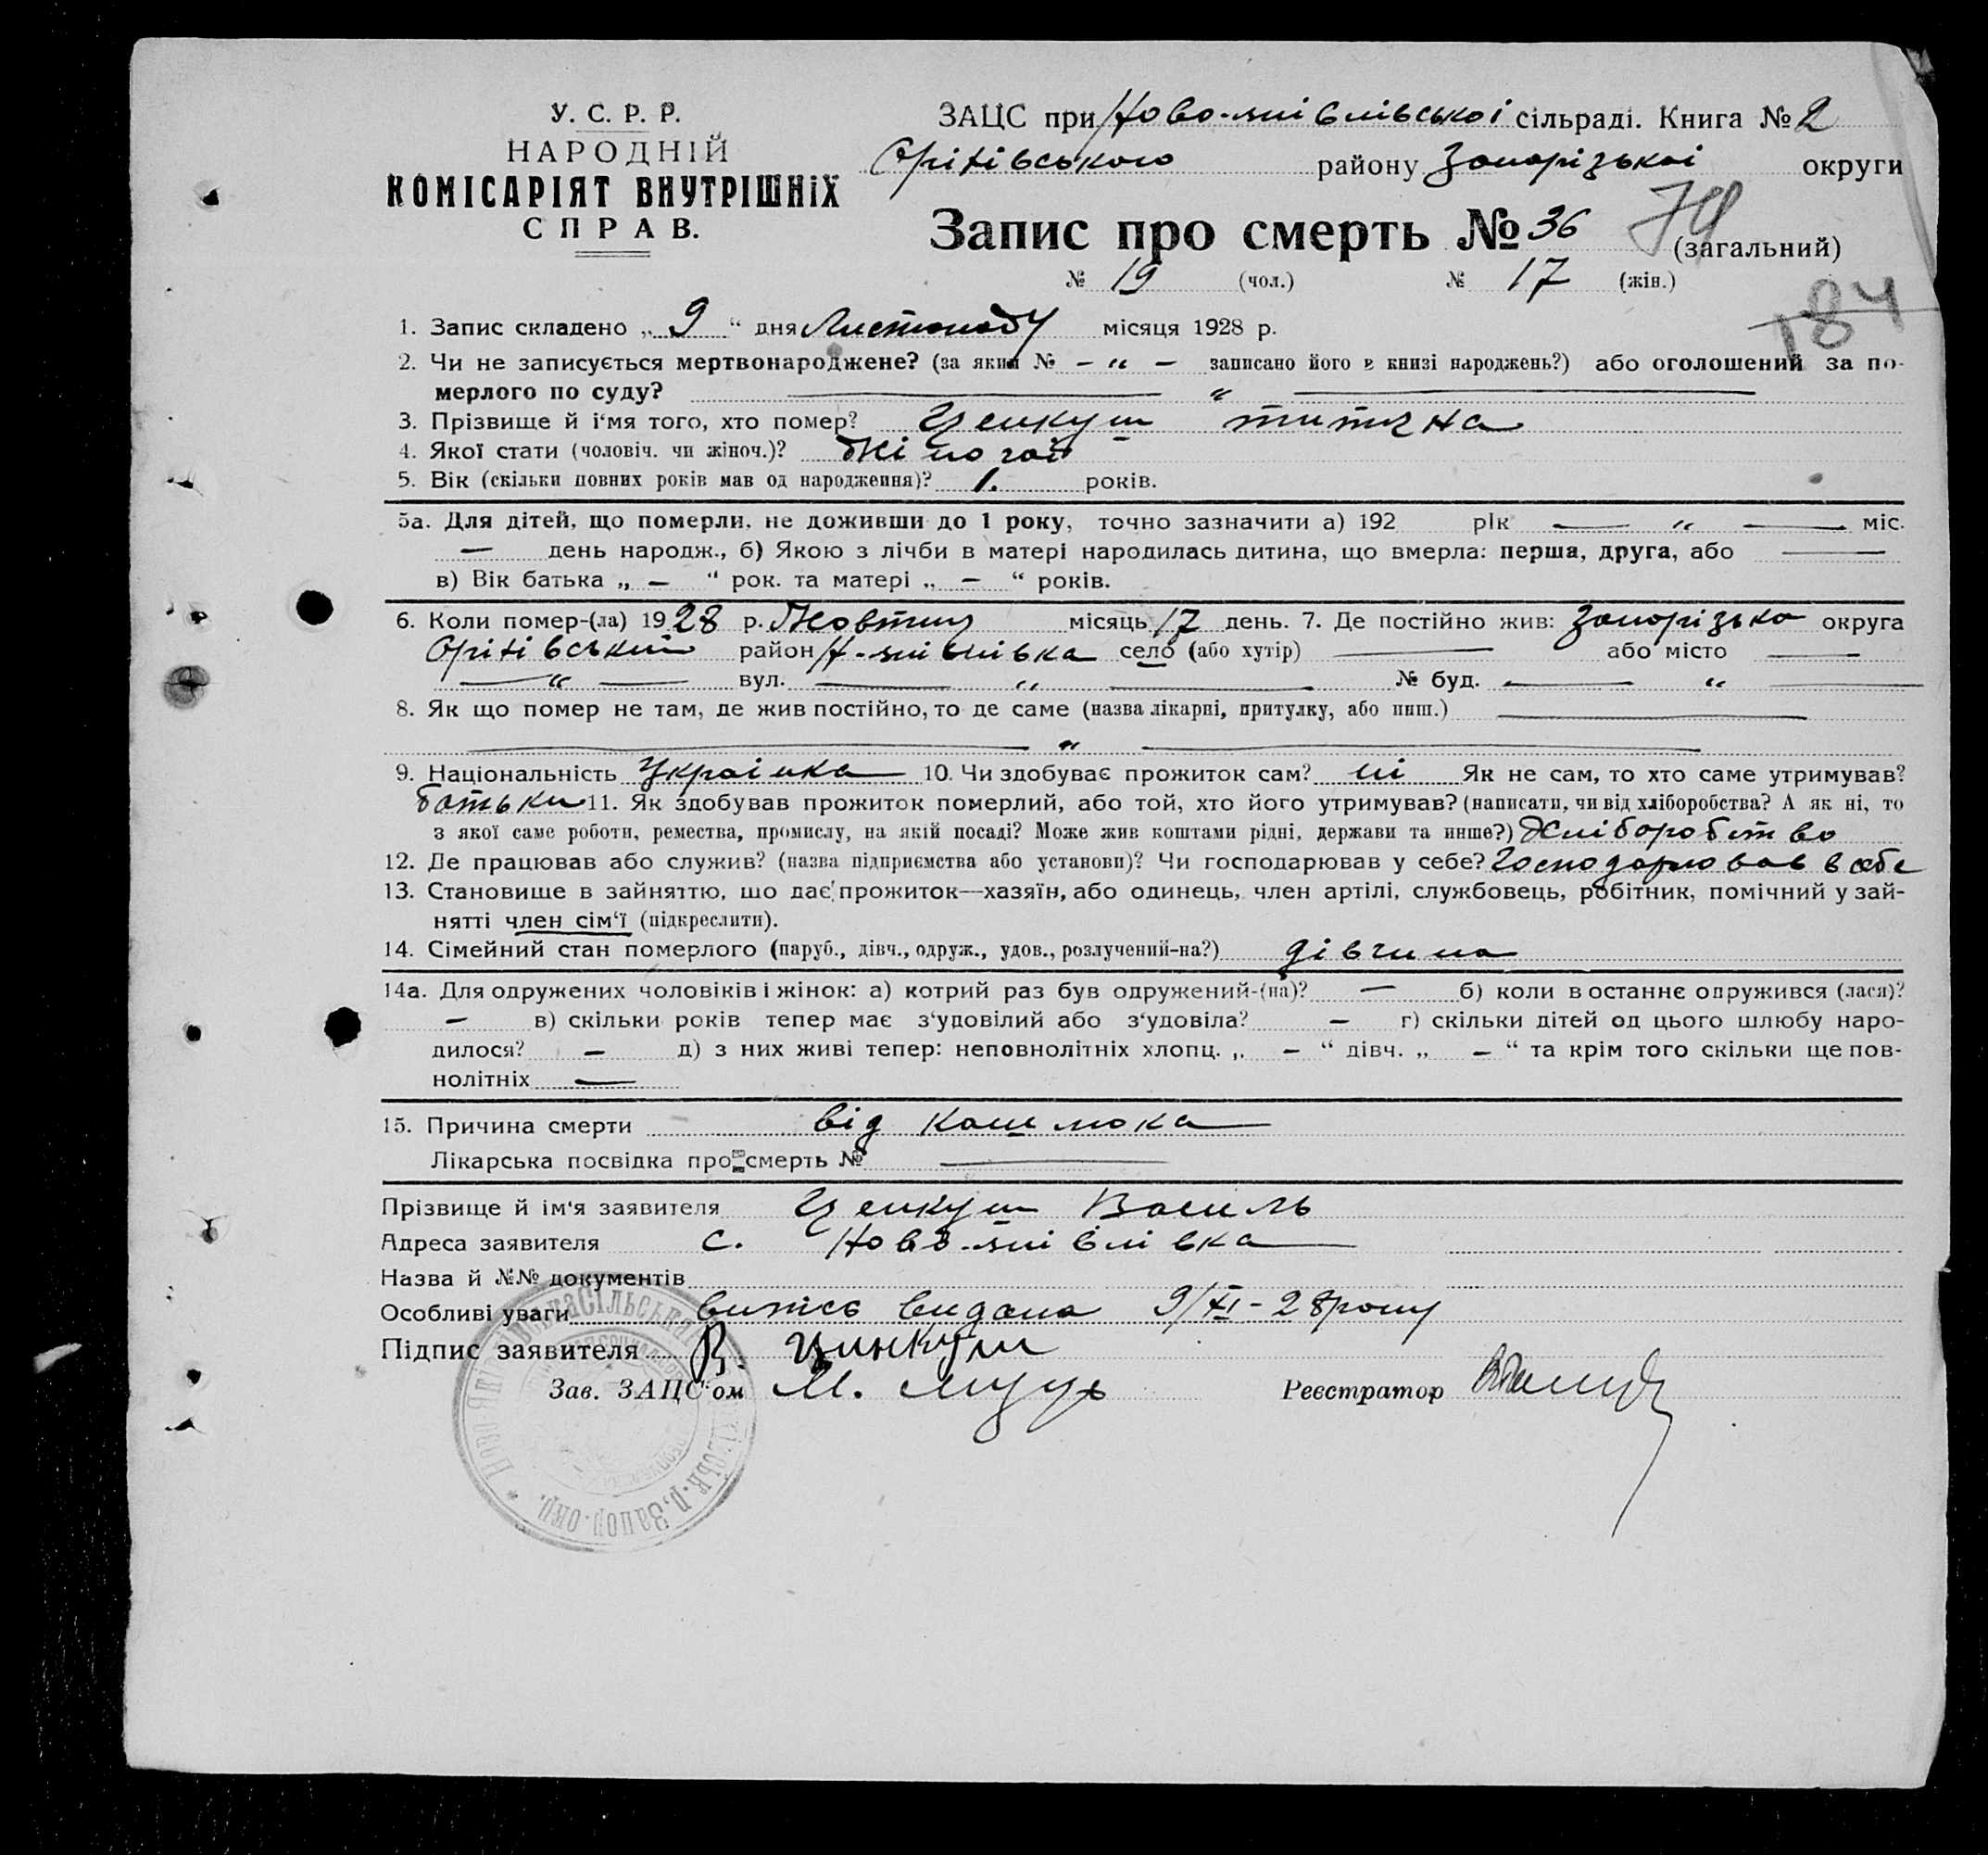 У. С. Р. Р.
НАРОДНІЙ
КОМІСАРІЯТ ВНУТРІШНІХ
СПРАВ.
ЗАЦС при Ново-япівлівської сільраді. Книга № 2
Оріхівського району Запорізької округи
Запис про смерть № 36 (загальний)
№ 19 (чол.) № 17 (жін.)
184
1. Запис складено „ 9 “ дня Листопаду місяця 1928 р.
2. Чи не записується мертвонароджене? (за яким № – “ – записано його в книзі народжень?) або оголошений за по-
мерлого по суду? — “ —
3. Прізвище й і‘мя того, хто помер? Ценкуш
4. Якої стати (чоловіч. чи жіноч.)? Жіночої
5. Вік (скільки повних років мав од народження)? 1. років.
5а. Для дітей, що померли, не доживши до 1 року, точно зазначити а) 192 рік — “ — міс.
— день народж., б) Якою з лічби в матері народилась дитина, що вмерла: перша, друга, або —
в) Вік батька „ – “ рок. та матері „ – “ років.
6. Коли помер-(ла) 1928 р. Жовтня місяць 17 день. 7. Де постійно жив: Запорізька округа
Оріхівський район Н-япівлівка село (або хутір) — або місто —
— “ — вул. — “ — № буд. — “ —
8. Як що помер не там, де жив постійно, то де саме (назва лікарні, притулку, або инш.) —
— “ —
9. Національність Українка 10. Чи здобуває прожиток сам? ні Як не сам, то хто саме утримував?
батьки 11. Як здобував прожиток померлий, або той, хто його утримував? (написати, чи від хліборобства? А як ні, то
з якої саме роботи, ремества, промислу, на якій посаді? Може жив коштами рідні, держави та инше?) Хліборобство
12. Де працював або служив? (назва підприємства або установи)? Чи господарював у себе? Господарював в себе
13. Становище в зайняттю, що дає прожиток—хазяїн, або одинець, член артілі, службовець, робітник, помічний у зай-
нятті член сім‘ї (підкреслити).
14. Сімейний стан померлого (паруб., дівч., одруж., удов., розлучений-на?) дівчина
14а. Для одружених чоловіків і жінок: а) котрий раз був одружений-(на)? — б) коли в останнє одружився (лася)?
— в) скільки років тепер має з‘удовілий або з‘удовіла? — г) скільки дітей од цього шлюбу наро-
дилося? — д) з них живі тепер: неповнолітніх хлопц. „ – “ дівч. „ – “ та крім того скільки ще пов-
нолітніх —
15. Причина смерти від кашлюка
Лікарська посвідка про смерть № —
Прізвище й ім'я заявителя Ценкуш Василь
Адреса заявителя с. Ново-япівлівка
Назва й №№ документів
Особливі уваги випись видана 9/XI-28 року
Підпис заявителя В. Цинкуш
Зав. ЗАЦС'ом М.
Реєстратор